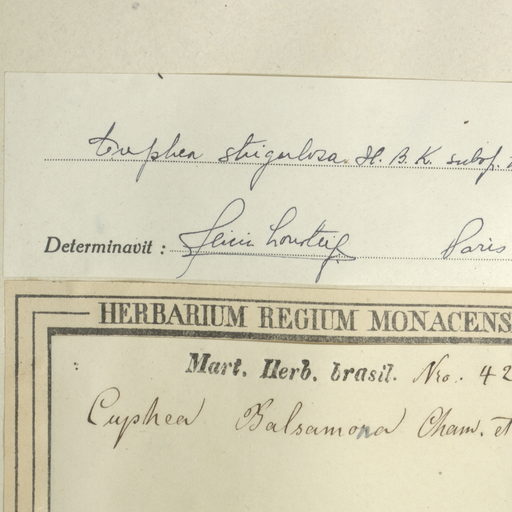 Cuphea strigulosa. H. B. K. subsp.
Determinavit : Paris
HERBARIUM REGIUM MONACENS
Mart. Herb. brasil. Nro. 42
Cuphea Balsamona Cham. et